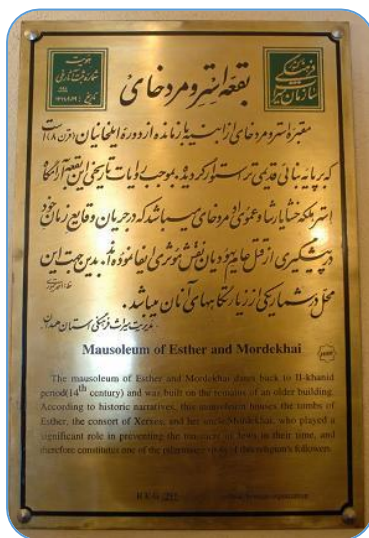 بقعه استر و مردخای
مقبره استر و مردخای از ابنیه بازمانده از دوره ایلخانیان (قرن ۸) است
که بر پایه بنائی قدیمی تر استوار گردیده. بموجب روایات تاریخی این بقعه آرامگاه
استر ملکه خشایارشا و عموی او مردخای میباشد که در جریان وقایع زمان خود
در پیشگیری از قتل عام یهودیان نقش مؤثری ایفا نموده اند. بدین جهت این
محل در شمار یکی از زیارتگاههای آنان میباشد.
مدیریت میراث فرهنگی استان همدان
Mausoleum of Esther and Mordekhai
The mausoleum of Esther and Mordekhai dates back to Il-khanid
period(14th century) and was built on the remains of an older building.
According to historic narratives, this mausoleum houses the tombs of
Esther, the consort of Xerxes, and her uncle Mordekhai, who played a
significant role in preventing the massacre of Jews in their time, and
therefore constitutes one of the pilgrimage sites of this religion's followers.